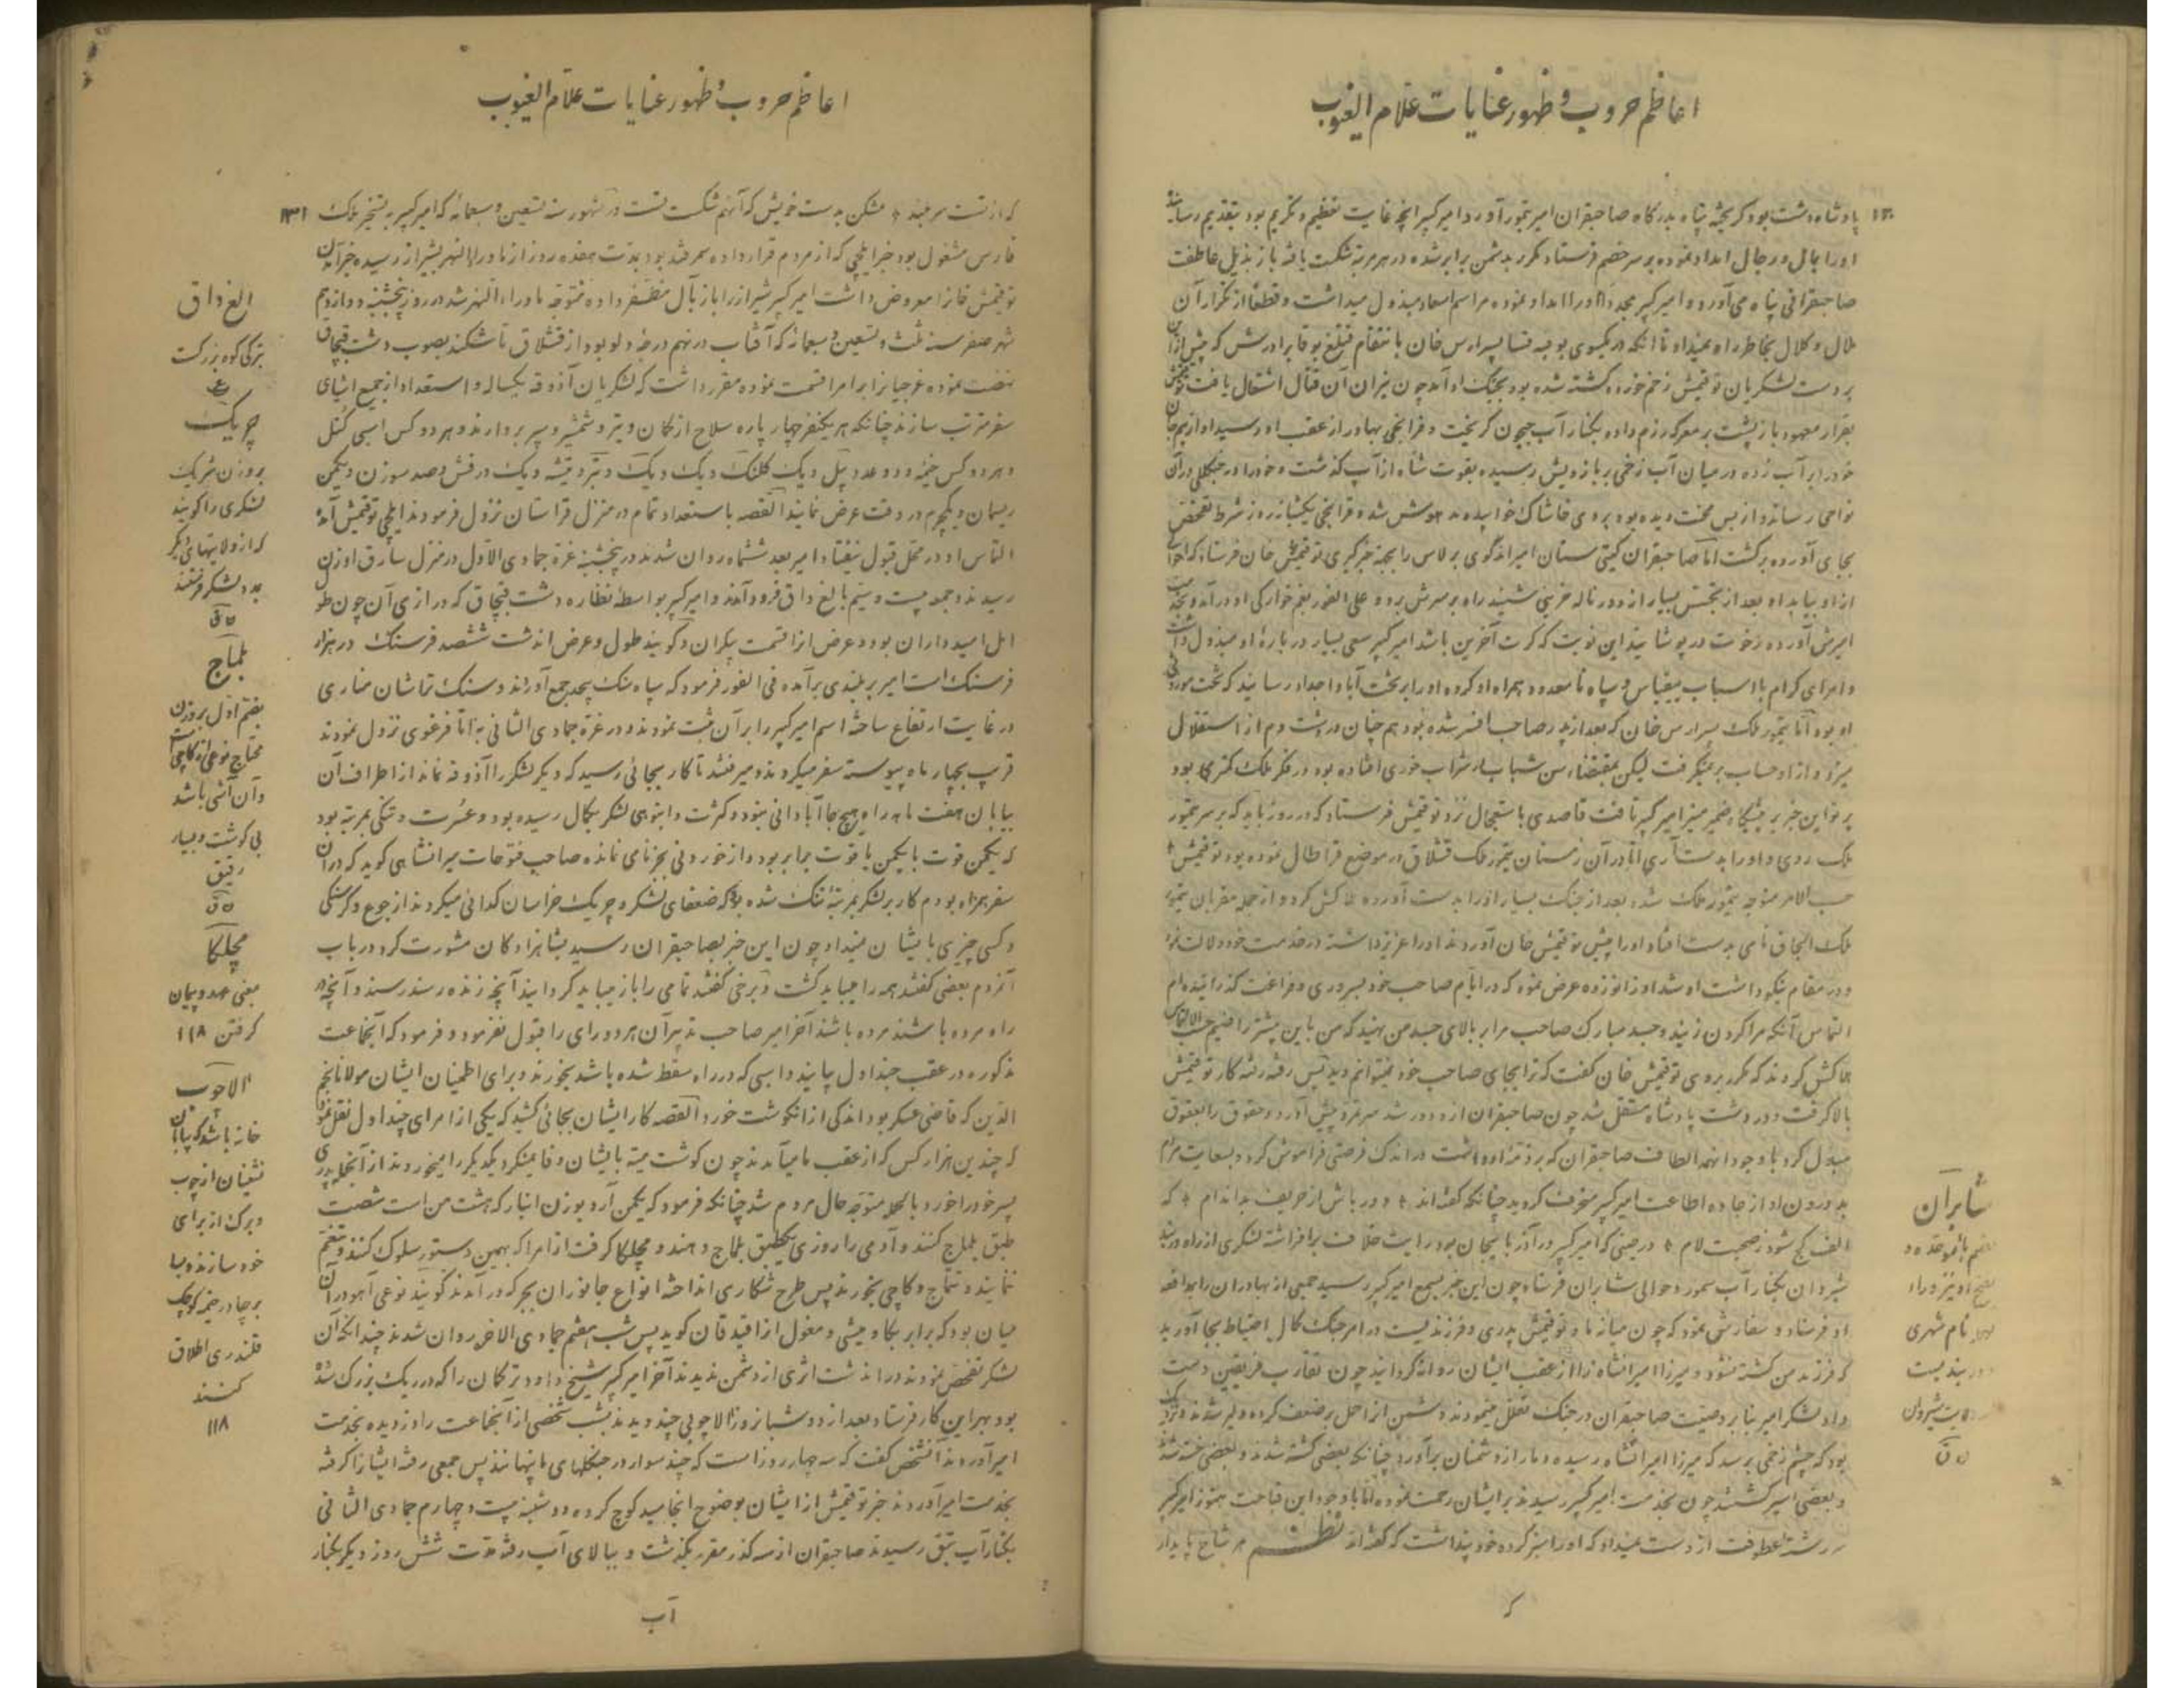 اعاظم حروب و ظهور عنایات علام الغیوب
۱۳۰
پادشاه دشت بود گریخته پناه بدرگاه صاحبقران امیر تیمور آورد امیر کبیر آنچه غایت تعظیم و تکریم بود بتقدیم رسانید
اورا بمال و رجال امداد نموده بر سر خصم فرستاد مکرر بدشمن برابر شده در هر مرتبه شکست یافته باز بذیل عاطفت
صاحبقرانی پناه می‌آورد و امیر کبیر مجددا اورا امداد نموده مراسم اسعاد مبذول میداشت و قطعا از تکرار آن
ملال و کلال بخاطر راه نمیداد تا آنکه در یکسوی بوقیه قتبا پسر ارس خان بانتقام قتلغ بوقا برادرش که پیش ازین
بر دست لشکریان توقتمش زخم خورده کشته شده بود بجنگ او آمد چون نیران آن قتال اشتعال یافت توقتمش
بقرار معهود باز پشت بر معرکه رزم داده بکنار آب جیحون گریخت و قرانچی بهادر از عقب او رسید او از بیم جان
خود را بر آب زده در میان آب زخمی بر بازویش رسیده بقوت شناه از آب گذشت و خود را در جنگلی در آن
نواحی رسانید و از بس محنت دیده بود بر وی خاشاک خوابیده مدهوش شده قرانچی یکشبانروز شرط تفحص
بجای آورده برگشت اما صاحبقران گیتی ستان امیر ایدگوی برلاس را بجهة خبرگیری توقتمش خان فرستاد که احوال
از او بیابد او بعد از تجسس بسیار از دور ناله حزینی شنید راه بر سرش برد و علی الفور بغم خوارگی او درآمد و بخدمت
امیرش آورده رخوت در پوشانید این نوبت که کرت آخرین باشد امیر کبیر سعی بسیار در باره او مبذول داشت
و امرای کرام با اسباب بیقیاس و سپاه نامعدود همراه او کرده او را بر تخت آبا و اجداد رسانید که تخت موروثی
او بود اما تیمور ملک پسر ارس خان که بعد از پدر صاحب افسر شده بود هم چنان در دشت دم از استقلال
میزد و از او حساب بر نمیگرفت لیکن بمقتضاء سن شباب بشراب خوری افتاده بود در فکر ملک کمتر می بود
پرتو این خبر بر پیشگاه ضمیر منیر امیر کبیر تافت قاصدی باستعجال نزد توقتمش فرستاد که در روز باید که بر سر تیمور
ملک روی و او را بدست آری اما در آن زمستان تیمور ملک قشلاق در موضع قراطال نموده بود توقتمش
حسب الامر متوجه تیمور ملک شد بعد از جنگ بسیار او را بدست آورده هلاکش کرد و از جمله مقربان تیمور
ملک البجاق نامی بدست افتاد او را پیش توقتمش خان آوردند او را عزیز داشته در خدمت خود دلالت نمود
و در مقام نیکو داشت او شد او زانو زده عرض نمود که در ایام صاحب خود بسروری و فراغت گذرانیده‌ام
التماس آنکه مرا گردن زنید و جسد مبارک صاحب مرا بر بالای جسد من نهید که من باین بیشتر راضیم حسب الالتماس
هلاکش کردند که مکرر بروی توقتمش خان گفت که ترا بجای صاحب خود نمیتوانم دید پس رفته رفته کار توقتمش
بالا گرفت و در دشت پادشاه مستقل شد چون صاحبقران از و دور شد سر تمرد پیش آورد و حقوق را بعقوق
مبدل کرد باوجود اینهمه الطاف صاحبقران که بر ذمه او داشت در اندک فرصتی فراموش کرد و بسعایت مردم
بد درون او از جاده اطاعت امیر کبیر منحرف گردید چنانکه گفته‌اند * دور باش از حریف بد اندام * که
الف کج شود ز صحبت لام * در حینی که امیر کبیر در آذربایجان بود رایت خلافت برافراشته لشکری از راه دربند
شیروان بکنار آب سمور و حوالی شابران فرستاد چون این خبر بسمع امیر کبیر رسید جمعی از بهادران را بمدافعه
او فرستاد و سفارش نمود که چون میانه ما و توقتمش پدری و فرزندیست در امر جنگ کمال احتیاط بجا آورید
که فرزند من کشته نشود و میرزا امیرانشاه را از عقب ایشان روانه گردانید چون تقارب فریقین دست
داد لشکر امیر بنا بر وصیت صاحبقران در جنگ تعلل مینمودند و دشمن از احمل بر ضعف کرده دلیر شدند و نزدیک
بود که چشم زخمی برسد که میرزا امیرانشاه رسیده دمار از دشمنان برآورد چنانکه بعضی کشته شدند و بعضی خسته شدند
و بعضی اسیر گشتند چون بخدمت امیر کبیر رسیدند بر ایشان رحمت نموده اما باوجود این قباحت هنوز امیر کبیر
سررشته عطوفت از دست نمیداد که او را سبز کرده خود پنداشت که گفته‌اند نظم هر شاخ پایدار
شابران
بضم با موحده و
بفتح او نیز و راء
مهمله نام شهری
دربندیست
ولایت شیروان
ق
ک
اعاظم حروب و ظهور عنایات علام الغیوب
۱۳۱
که از تست سربلند * مشکن بدست خویش که آنهم شکست تست در شهور سنه تسعین و سبعمائه که امیر کبیر بتسخیر ملک
فارس مشغول بود خبر ایلچی که از مردم قرار داده سمرقند بود بمدت هفده روز از ماوراء النهر بشیراز رسیده خبر آمدن
توقتمش خانرا معروض داشت امیر کبیر شیراز را باز بآل مظفر داده متوجه ماوراء النهر شد در روز پنجشنبه دوازدهم
شهر صفر سنه ثلث و تسعین و سبعمائه که آفتاب در نهم درجه دلو بود از قشلاق تاشکند بصوب دشت قبچاق
نهضت نموده غرجیانرا بر امرا قسمت نموده مقرر داشت که لشکریان آذوقه یکساله و استعداد از جمیع اشیای
سفر مرتب سازند چنانکه هر یکنفر چهار پاره سلاح از کمان و تیر و شمشیر و سپر بردارند و هر دو کس اسبی کتل
و هر ده کس خیمه و دو عدد بیل و یک کلنگ و یک دیگ و تبر و تیشه و یک درفش و صد سوزن و یکمن
ریسمان و یکچرم در وقت عرض نمایند القصه با استعداد تمام در منزل قراسمان نزول فرمودند ایلچی توقتمش آمده
التماس او در محل قبول نیفتاد امیر بعد ششماه روان شدند در پنجشنبه غره جمادی الاول در منزل سارق اوزن
رسیدند و جمعه بیست و سیم بالغ داق فرود آمدند و امیر کبیر بواسطه نظاره دشت قبچاق که درازی آن چون طول
امل امیدواران بود و عرض از قسمت بیکران و گویند طول و عرض اندشت ششصد فرسنگ در هزار
فرسنگ است امیر بر بلندی برآمده فی الفور فرمود که سپاه سنگ بیحد جمع آوردند و سنگ تراشان مناری
در غایت ارتفاع ساخته اسم امیر کبیر را بر آن ثبت نمودند و در غره جمادی الثانی به اناقرغوی نزول نمودند
قریب بچهار ماه پیوسته سفر میکردند و میرفتند تا کار بجائی رسید که دیگر لشکر را آذوقه نماند از اطراف آن
بیابان هفت ماهه راه هیچ جا آبادانی نبود و کثرت و انبوهی لشکر بکمال رسیده بود و عسرت و تنگی بمرتبه بود
که یکمن قوت با یکمن یاقوت برابر بود و از خوردنی بجز نامی نمانده صاحب فتوحات میرانشاهی گوید که در آن
سفر همراه بودم کار بر لشکر بمرتبه تنگ شده بود که ضعفای لشکر و چریک خراسان گدائی میکردند از جوع و گرسنگی
و کسی چیزی بایشان نمیداد چون این خبر بصاحبقران رسید بشاهزادگان مشورت کرد در باب
آنمردم بعضی گفتند همه را میباید کشت و برخی گفتند تمامی را باز میباید گردانید آنچه زنده رسند رسند و آنچه در
راه مرده باشند مرده باشند آخر امیر صاحب تدبیر آن هر دو رای را قبول نفرمود و فرمود که آنجماعت
مذکوره در عقب چنداول بیایند و اسبی که در راه سقط شده باشد بخورند و برای اطمینان ایشان مولانا نجم
الدین که قاضی عسکر بود اندکی از انگوشت خورد القصه کار ایشان بجائی کشید که یکی از امرای چنداول نقل نمود
که چندین هزار کس که از عقب ما میآمدند چون گوشت میته بایشان وفا نمیکرد یکدیگر را میخوردند از آنجمله پدری
پسر خود را خورد بالجمله متوجه حال مردم شد چنانکه فرمود که یکمن آرد بوزن انبار که هشت من است شصت
طبق بلماج کنند و آدمی را روزی یکطبق بلماج دهند و مچلکا گرفت از امرا که بهمین دستور سلوک کنند و تنعم
ننمایند و تتماج و کاچی نخورند پس طرح شکاری انداخته انواع جانوران بجرگه درآمدند گویند نوعی آهو در آن
میان بود که برابر بگاومیشی و مغول از آقندقان گوید پس شب هفتم جمادی الاخر روان شدند چندانکه آن
لشکر تفحص نمودند در اندشت اثری از دشمن ندیدند آخر امیر کبیر شیخ داود ترکمان را که در ریک بزرگ شده
بود بهر این کار فرستاد بعد از دو شبانروز الاچوبی چند دیدند شب شخصی از آنجماعت را دزدیده بخدمت
امیر آوردند آنشخص گفت که سه چهار روز است که چند سوار در جنگلهای ما پنهانند پس جمعی رفته ایشانرا گرفته
بخدمت امیر آوردند خبر توقتمش از ایشان بوضوح انجامید کوچ کرده دوشنبه بیست و چهارم جمادی الثانی
بکنار آب تیق رسیدند صاحبقران از سه گذر مقرر بگذشت و ببالای آب رفته مدت شش روز دیگر بکنار
الغ داق
بترکی کوه بزرگست
ع
چریک
بر وزن شریک
لشکری را گویند
که از ولایتهای دیگر
بمدد لشکر فرستند
ق
بلماج
بضم اول بر وزن
محتاج نوعی از کاچی است
و آن آشی باشد
بی گوشت و بسیار
رقیق
ق
مچلکا
بمعنی عهد و پیمان
گرفتن ۱۱۸
الاچوب
خانه باشد که بیابان
نشینان از چوب
و برگ از برای
خود سازند و بیا
بر چادر خیمه کوچک
قلندری اطلاق
کنند
۱۱۸
آب